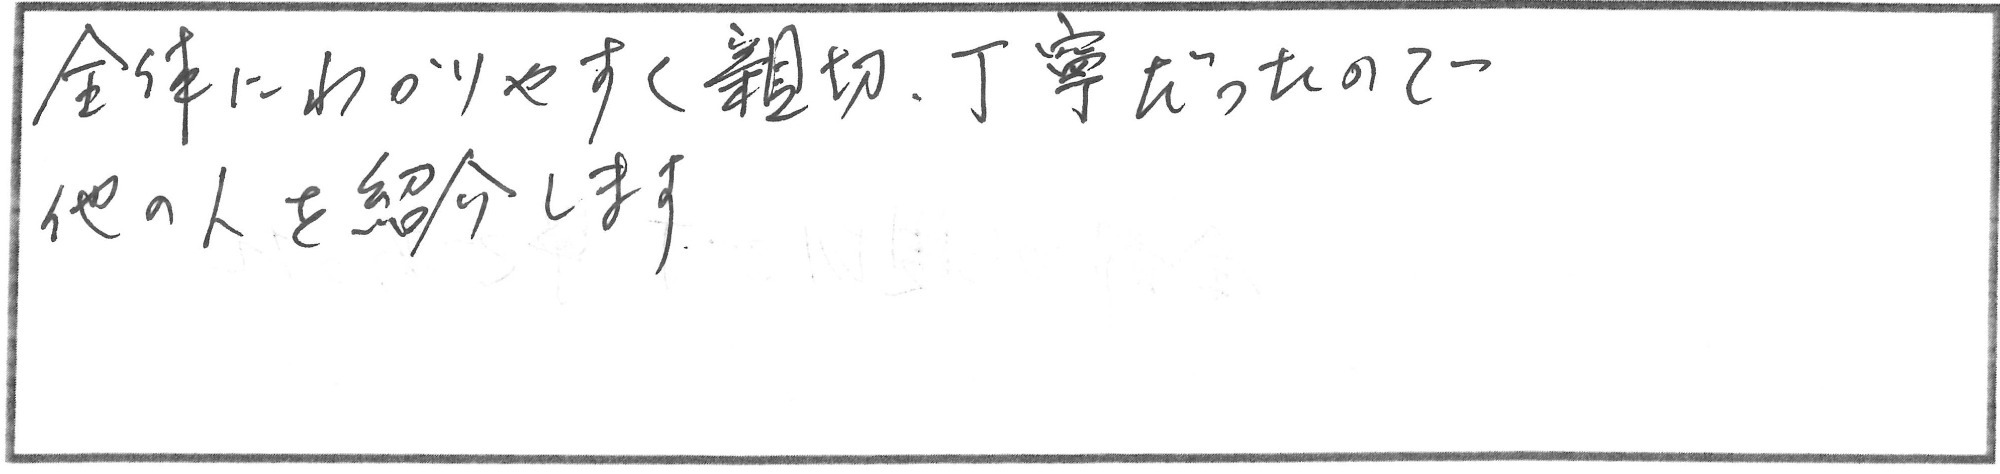 全体にわかりやすく親切、丁寧だったので
他の人を紹介します